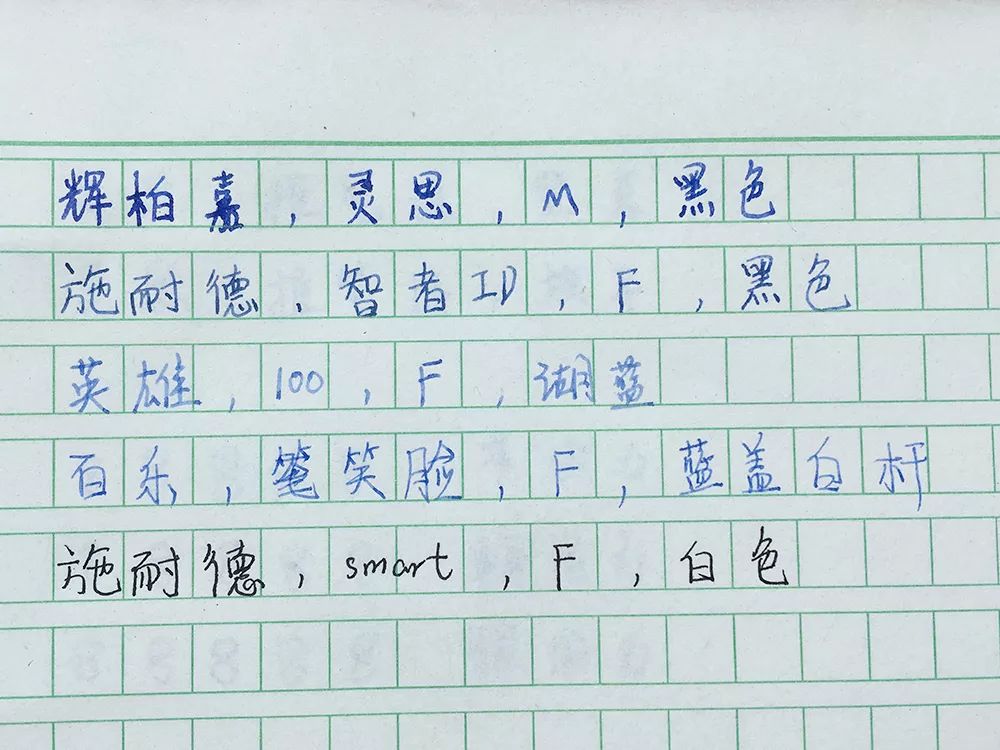 辉柏嘉，灵思，M，黑色
施耐德，智者ID，F，黑色
英雄，100，F，湖蓝
百乐，笑脸，F，蓝盖白杆
施耐德，smart，F，白色